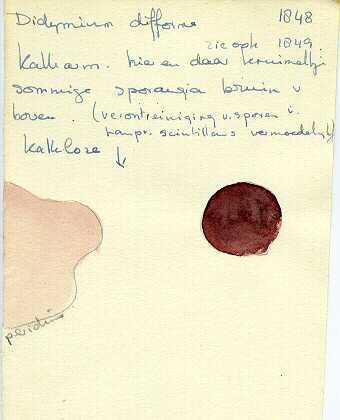 Didymium difforme 1848
zie ook 1849
Kalkarm. hier en daar kruimeltje
sommige sporangia bruin v
boven. (verontreiniging v. sporen v.
Lampr. scintillans vermoedelijk)
Kalkloze ↓
peridium